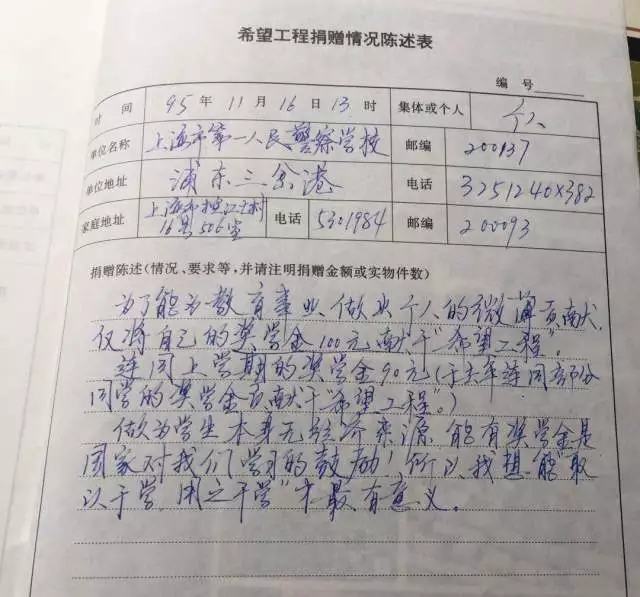 希望工程捐赠情况陈述表
编号
时间 95年11月16日13时 集体或个人 个人
单位名称 上海市第一人民警察学校 邮编 200137
单位地址 浦东三岔港 电话 3251240×382
家庭地址 上海市 村 电话 5301984 邮编 200093
16号506室
捐赠陈述(情况、要求等,并请注明捐赠金额或实物件数)
为了能为教育事业,做出个人的微薄贡献,
仅将自己的奖学金100元献于“希望工程”。
连同上学期的奖学金90元(于去年连同部分
同学的奖学金贡献于“希望工程”。)
做为学生本身无经济来源,能有奖学金是
国家对我们学习的鼓励,所以我想能“取
以于学,用之于学”才最有意义。